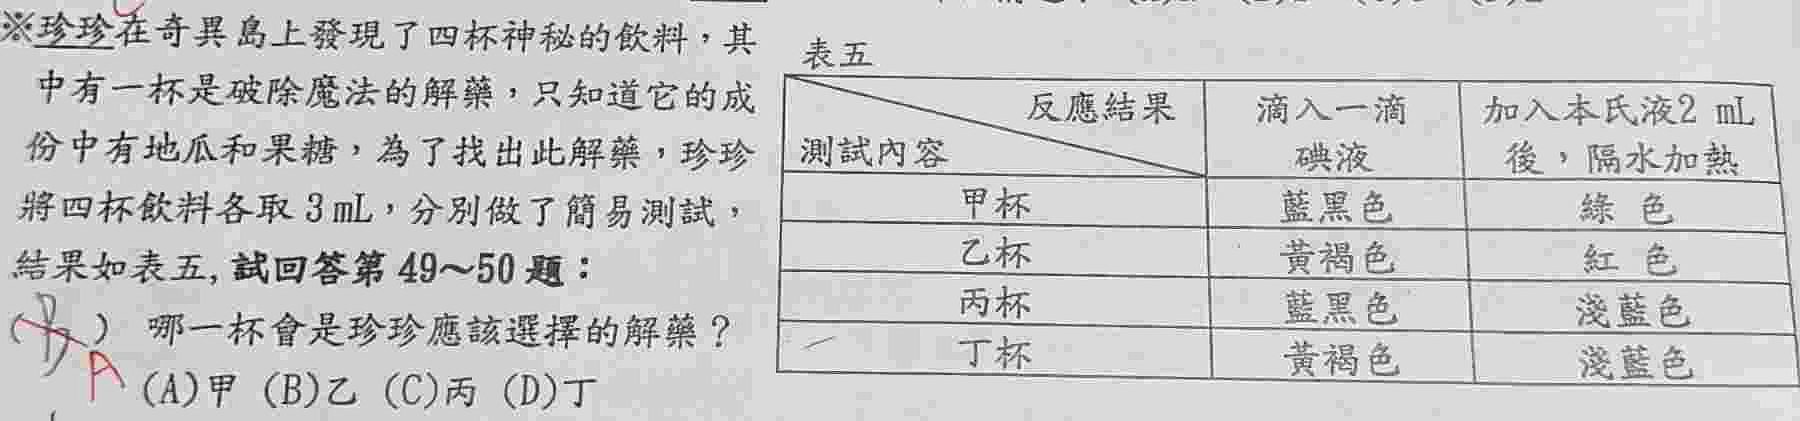 ※珍珍在奇異島上發現了四杯神秘的飲料，其
中有一杯是破除魔法的解藥，只知道它的成
份中有地瓜和果糖，為了找出此解藥，珍珍
將四杯飲料各取 3 mL，分別做了簡易測試，
結果如表五, 試回答第 49～50 題：
( B ) 哪一杯會是珍珍應該選擇的解藥？
A
(A)甲 (B)乙 (C)丙 (D)丁
表五
反應結果 滴入一滴 加入本氏液2 mL
測試內容 碘液 後，隔水加熱
甲杯 藍黑色 綠 色
乙杯 黃褐色 紅 色
丙杯 藍黑色 淺藍色
丁杯 黃褐色 淺藍色